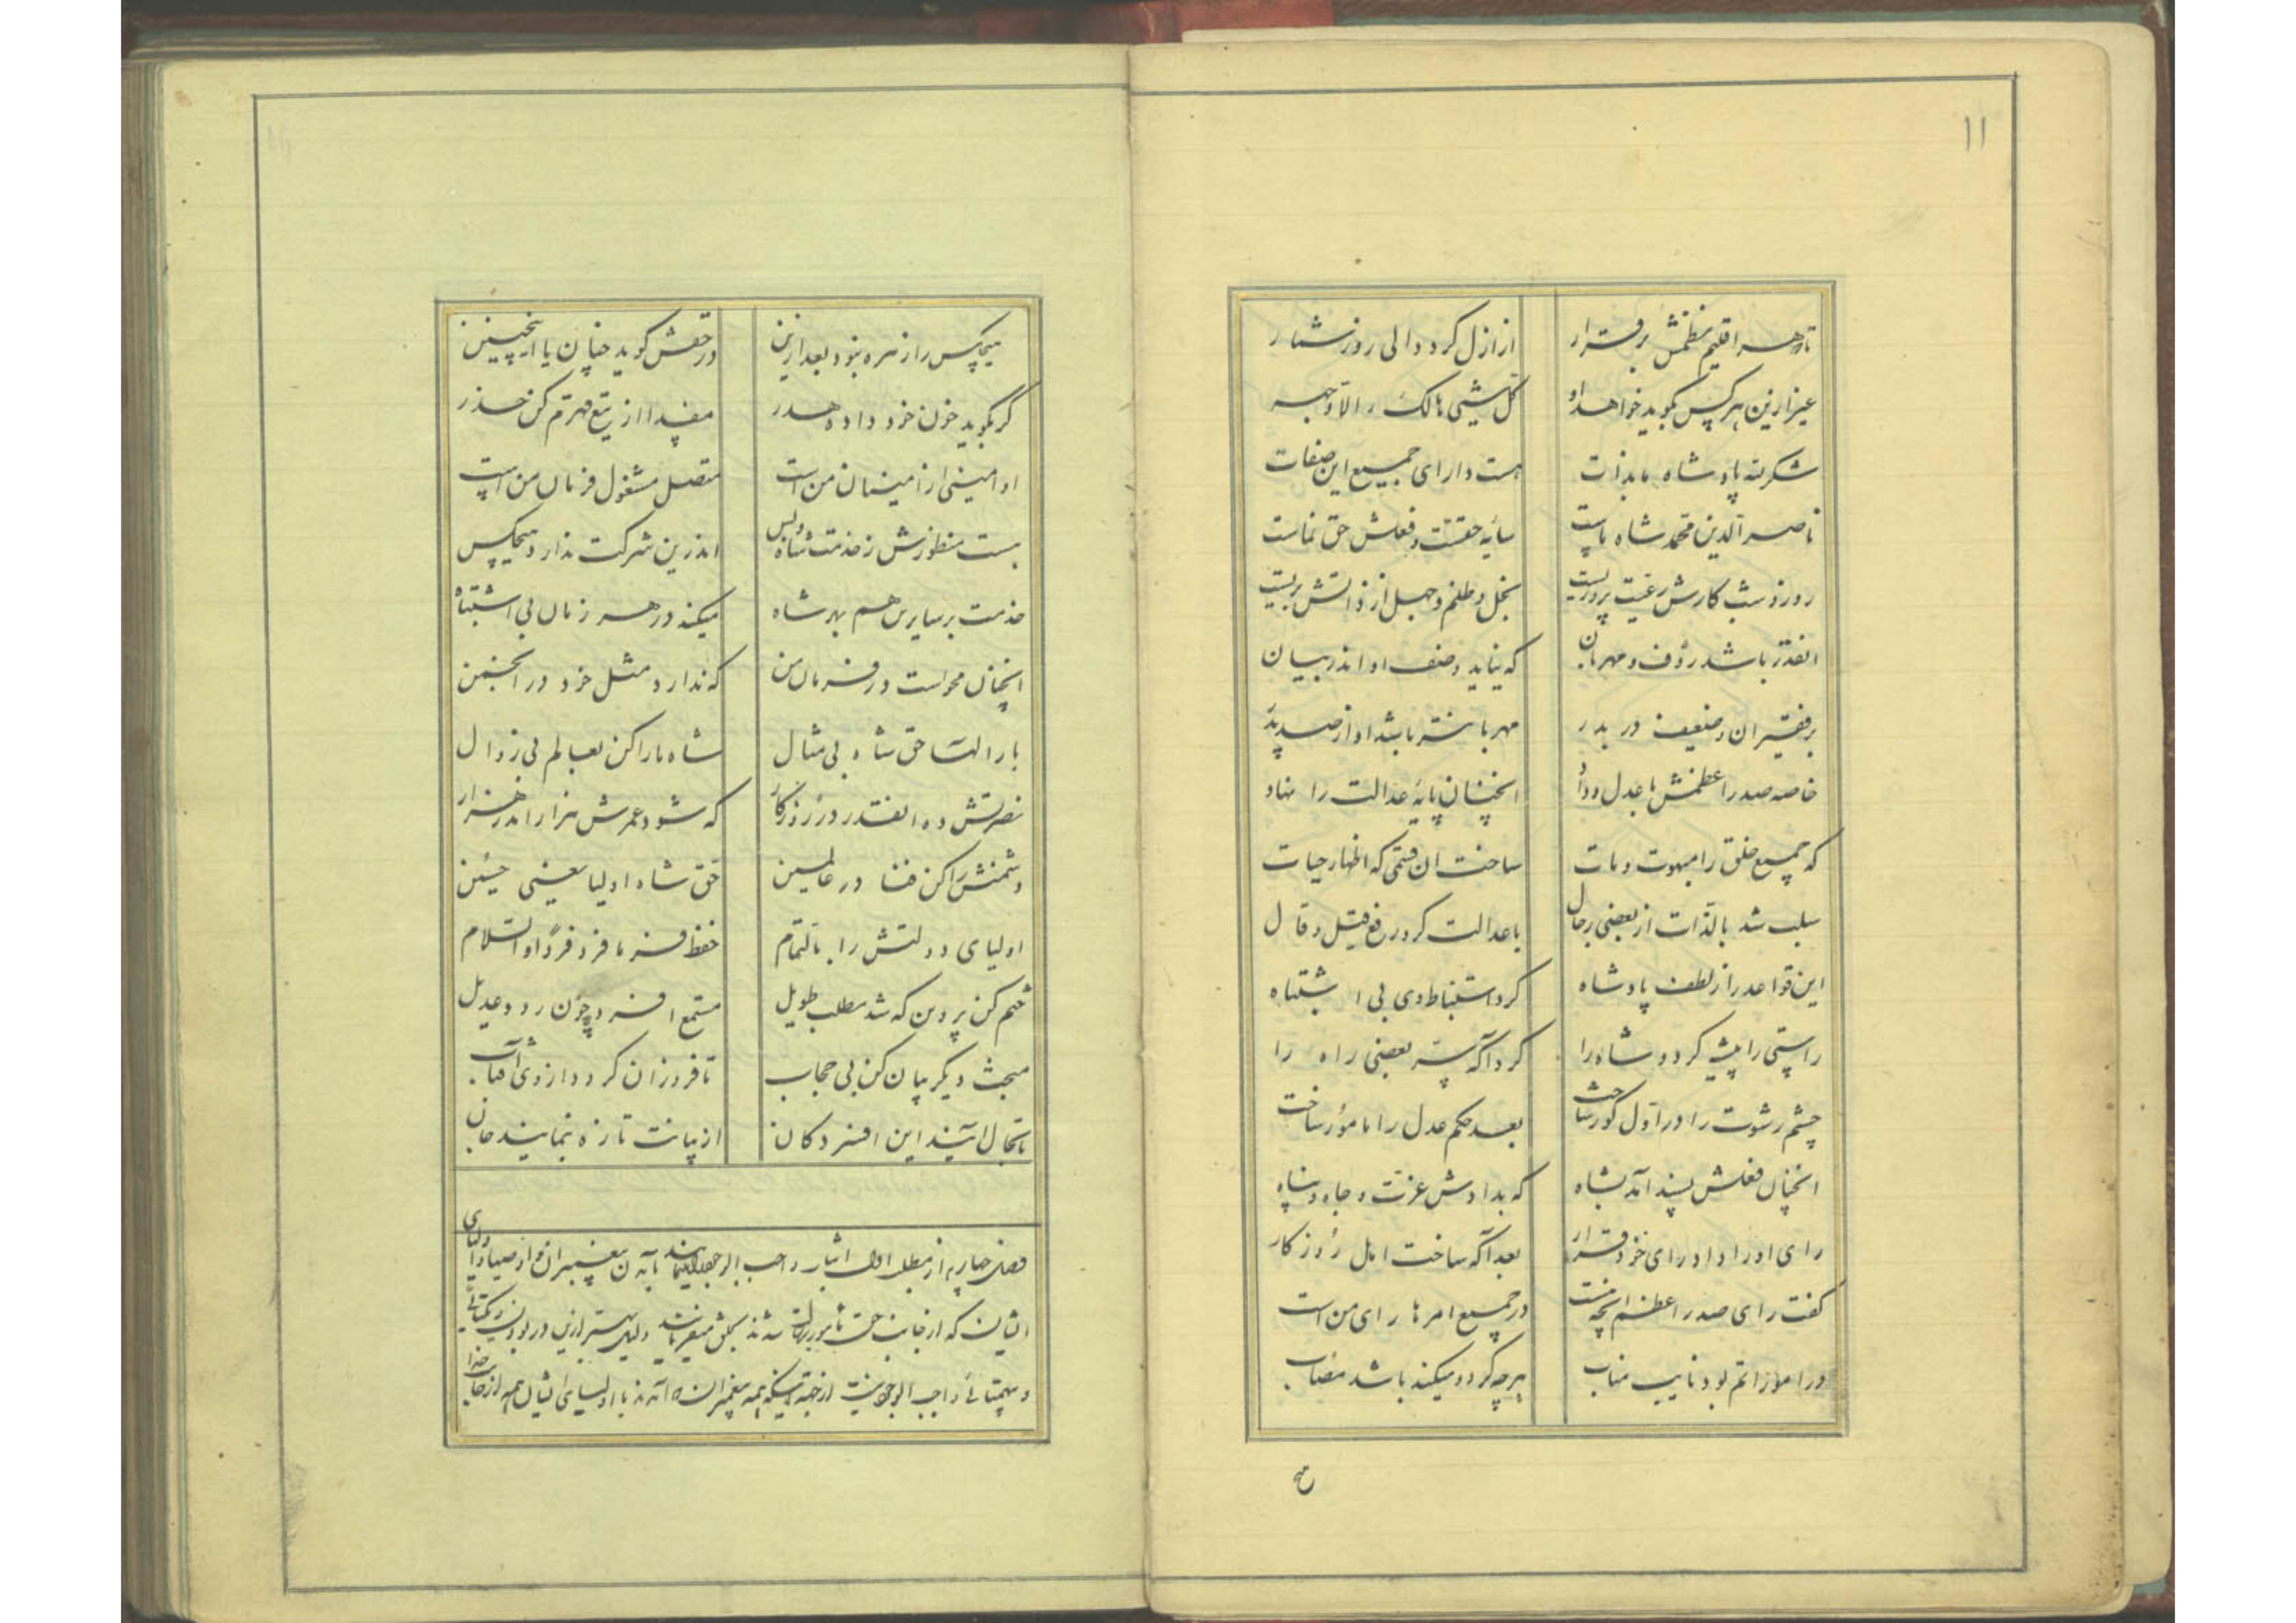 ۱۱
در هر اقلیم نظمش برقرار از ازل کرد و الی روز شمار
غیر ازین هر کس بگوید خواهد او کل شیئی هالک الا وجهه
شکر لله پادشاه ما بذات هست دارای جمیع این صفات
ناصر الدین محمد شاه ماست سایه حقست و فعلش حق نماست
روز و شب کارش رعیت پروریست بخل و ظلم و جهل از ذاتش بریست
انقدر باشد رؤف و مهربان که نیاید وصف او اندر بیان
بر فقیران و ضعیف در بدر مهربانتر باشد او از صد پدر
خاصه صدر اعظمش با عدل و داد انچنان پایه عدالت را نهاد
که جمیع خلق را مبهوت و مات ساخت ان قسمی که اظهار حیات
سلب شد بالذات از بعضی رجال با عدالت کرد رفع قیل و قال
این قواعد را ز لطف پادشاه کرد استنباط وی بی اشتباه
راستی را پیشه کرد و شاه را کرد آگه بعضی راه را
چشم رشوت را در اول کور ساخت بعد حکم عدل را مامور ساخت
انچنان فعلش پسند آمد بشاه که بدادش عزت و جاه و پناه
رای او را داد در رای خود قرار بعد آگه ساخت اهل روزگار
گفت رای صدر اعظم انچه هست در جمیع امرها رای من است
در امورات بود نایب مناب هر چه کرد و میکند باشد مصاب
هیچکس را زهره نبود بعد ازین در حقش گوید چنان یا اینچنین
گر بگوید خون خود داده هدر مفسدا از تیغ قهرم کن حذر
او امینی از امینان من است متصل مشغول فرمان من است
هست منظورش ز خدمت شاه و بس اندرین شرکت ندارد هیچکس
خدمت بر سایرین هم بهر شاه میکند در هر زمان بی اشتباه
انچنان محو است در فرمان من که ندارد مثل خود در انجمن
بار الها حق شاه بی مثال شاه ما را کن بعالم بی زوال
نصرتش ده انقدر در روزگار که شود عمرش هزار اندر هزار
دشمنش را کن فنا در عالمین حق شاه اولیا یعنی حسین
اولیای دولتش را بالتمام حفظ فرما فرد فرد او السلام
ختم کن پروین که شد مطلب طویل مستمع افسرد چون رود عدیل
مبحث دیگر بیان کن بی حجاب تا فروزان گردد از وی آفتاب
تا بحال آیند این افسردگان از بیانت تازه بنمایند جان
فصل چهارم از مطلب اول اثبات واجب الوجود پیغمبران و اوصیا و اولیای
ایشان که از جانب حق مامور شدند بخلق دلیل بهتر ازین در بودن و یکتائی
و بیهمتائی واجب الوجود نیست همه پیغمبران که آمدند با اولیای ایشان همه از جانب خدا